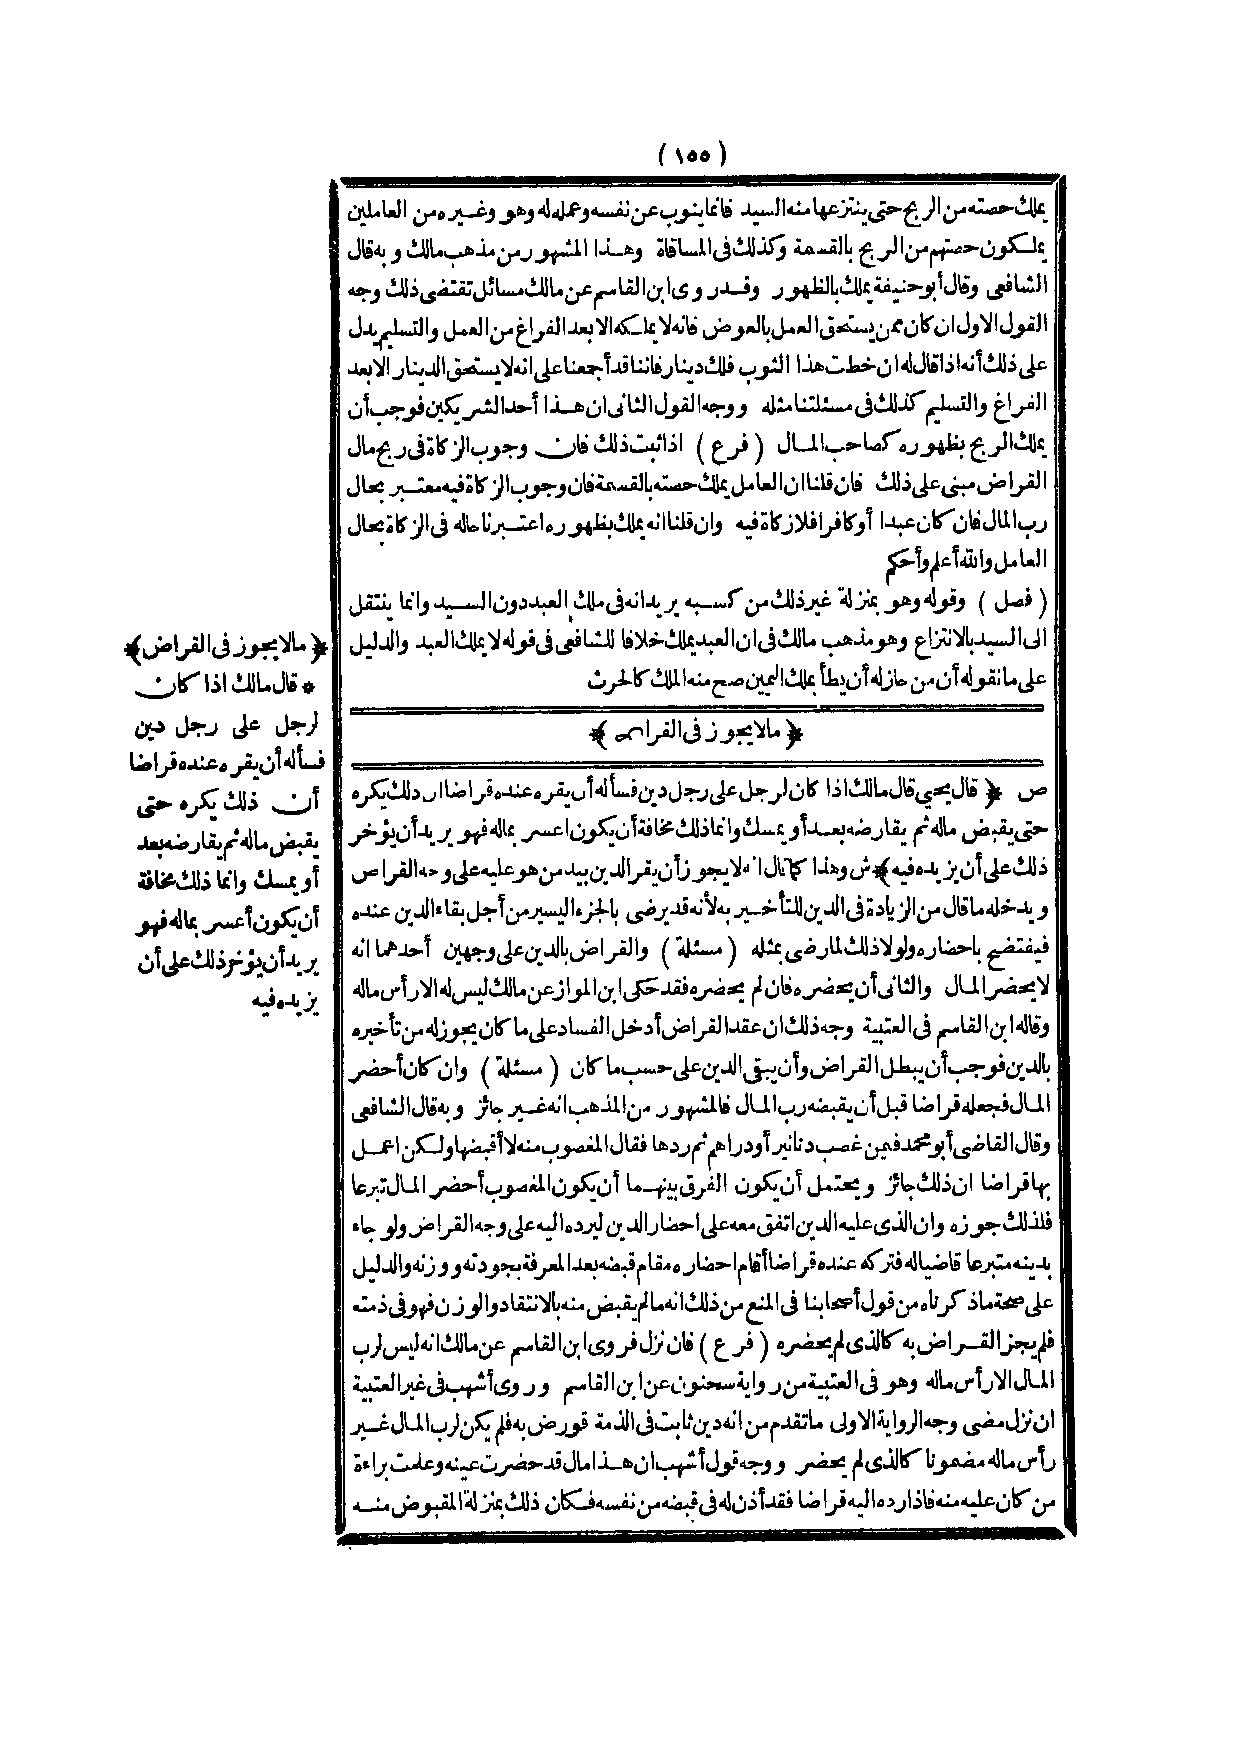 ( ١٥٥ )
يملك حصته من الربح حتى ينتزعها منه السيد فانما ينوب عن نفسه وعمله له وهو وغيره من العاملين
يملكون حصتهم من الربح بالقسمة وكذلك فى المساقاة وهذا المشهور من مذهب مالك وبه قال
الشافعى وقال أبو حنيفة يملك بالظهور وقد روى ابن القاسم عن مالك مسائل تقتضى ذلك وجه
القول الاول ان كان ممن يستحق العمل بالعوض فانه لا يملكه الا بعد الفراغ من العمل والتسليم يدل
على ذلك أنه اذا قال له ان خطت هذا الثوب فلك دينار فاننا قد أجمعنا على انه لا يستحق الدينار الا بعد
الفراغ والتسليم كذلك فى مسئلتنا مثله ووجه القول الثانى ان هذا أحد الشريكين فوجب أن
يملك الربح بظهوره كصاحب المال ( فرع ) اذا ثبت ذلك فان وجوب الزكاة فى ربح مال
القراض مبنى على ذلك فان قلنا ان العامل يملك حصته بالقسمة فان وجوب الزكاة فيه معتبر بحال
رب المال فان كان عبدا أو كافرا فلا زكاة فيه وان قلنا انه يملك بظهوره اعتبرنا حاله فى الزكاة بحال
العامل والله أعلم وأحكم
( فصل ) وقوله وهو بمنزلة غير ذلك من كسبه يريد انه فى ملك العبد دون السيد وانما ينتقل
الى السيد بالانتزاع وهو مذهب مالك فى ان العبد يملك خلافا للشافعى فى قوله لا يملك العبد والدليل
على ما نقوله أن من جاز له أن يطأ بملك اليمين صح منه الملك كالحرث
﴿ مالا يجوز فى القراض ﴾
ص ﴿ قال يحيى قال مالك اذا كان لرجل على رجل دين فسأله أن يقره عنده قراضا ان ذلك يكره
حتى يقبض ماله ثم يقارضه بعد أو يمسك وانما ذلك مخافة أن يكون اعسر بماله فهو يريد أن يؤخر
ذلك على أن يزيده فيه ﴾ ش وهذا كما قال انه لا يجوز أن يقر الدين بيد من هو عليه على وجه القراض
ويدخله ما قال من الزيادة فى الدين للتأخير به لأنه قد يرضى بالجزء اليسير من أجل بقاء الدين عنده
فيفتضح باحضاره ولولا ذلك لما رضى بمثله ( مسئلة ) والقراض بالدين على وجهين أحدهما انه
لا يحضر المال والثانى أن يحضره فان لم يحضره فقد حكى ابن المواز عن مالك ليس له الا رأس ماله
وقاله ابن القاسم فى العتبية وجه ذلك ان عقد القراض أدخل الفساد على ما كان يجوز له من تأخيره
بالدين فوجب أن يبطل القراض وأن يبقى الدين على حسب ما كان ( مسئلة ) وان كان أحضر
المال فجعله قراضا قبل أن يقبضه رب المال فالمشهور من المذهب انه غير جائز وبه قال الشافعى
وقال القاضى أبو محمد فيمن غصب دنانير أو دراهم ثم ردها فقال المغصوب منه لا أقبضها ولكن اعمل
بها قراضا ان ذلك جائز ويحتمل أن يكون الفرق بينهما أن يكون المغصوب أحضر المال تبرعا
فلذلك جوزه وان الذى عليه الدين اتفق معه على احضار الدين ليرده اليه على وجه القراض ولو جاء
بدينه متبرعا قاضيا له فتركه عنده قراضا أقام احضاره مقام قبضه بعد المعرفة بجودته ووزنه والدليل
على صحة ماذكرناه من قول أصحابنا فى المنع من ذلك انه مالم يقبض منه بالانتقاد والوزن فهو فى ذمته
فلم يجز القراض به كالذى لم يحضره ( فرع ) فان نزل فروى ابن القاسم عن مالك انه ليس لرب
المال الا رأس ماله وهو فى العتبية من رواية سحنون عن ابن القاسم وروى أشهب فى غير العتبية
ان نزل مضى وجه الرواية الاولى ما تقدم من انه دين ثابت فى الذمة قورض به فلم يكن لرب المال غير
رأس ماله مضمونا كالذى لم يحضر ووجه قول أشهب ان هذا مال قد حضرت عينه وعلمت براءة
من كان عليه منه فاذا رده اليه قراضا فقد أذن له فى قبضه من نفسه فكان ذلك بمنزلة المقبوض منه
﴿ مالا يجوز فى القراض ﴾
* قال مالك اذا كان
لرجل على رجل دين
فسأله أن يقره عنده قراضا
أن ذلك يكره حتى
يقبض ماله ثم يقارضه بعد
أو يمسك وانما ذلك مخافة
أن يكون أعسر بماله فهو
يريد أن يؤخر ذلك على أن
يزيده فيه